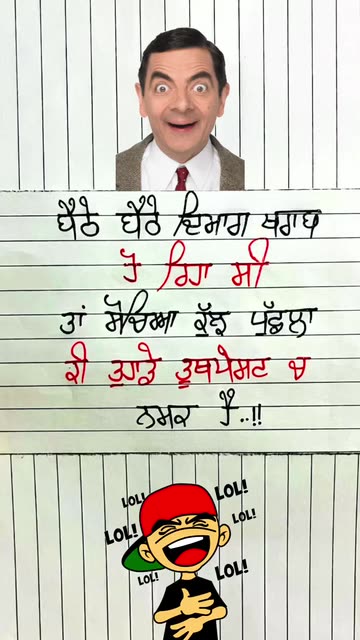 ਬੈਠੇ ਬੈਠੇ ਦਿਮਾਗ ਖਰਾਬ
ਹੋ ਰਿਹਾ ਸੀ
ਤਾਂ ਸੋਚਿਆ ਕੁੱਝ ਪੁੱਛਲਾ
ਕੀ ਤੁਹਾਡੇ ਟੂਥਪੇਸਟ ਚ
ਨਮਕ ਹੈ..!!
LOL! LOL!
LOL! LOL!
LOL! LOL!